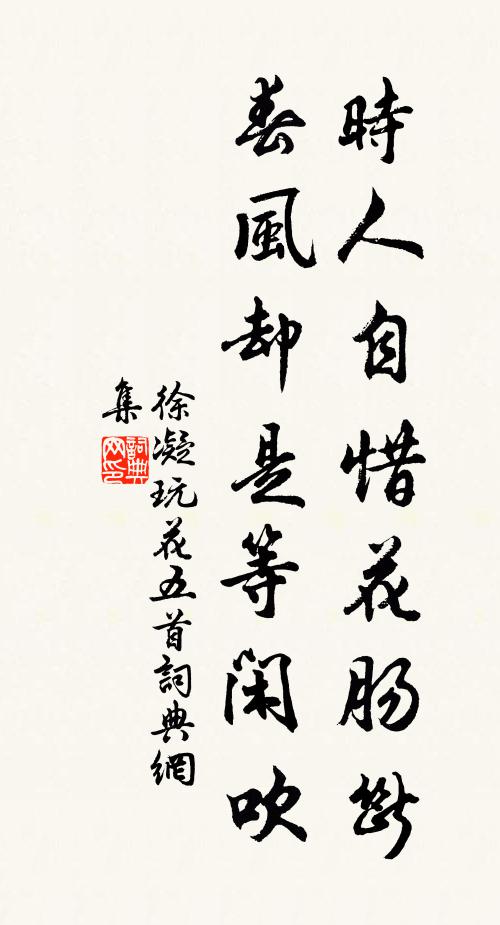 時人自惜花肠斷
春風却是等闲吹
徐凝玩花五首詞典網
集
詞典网印